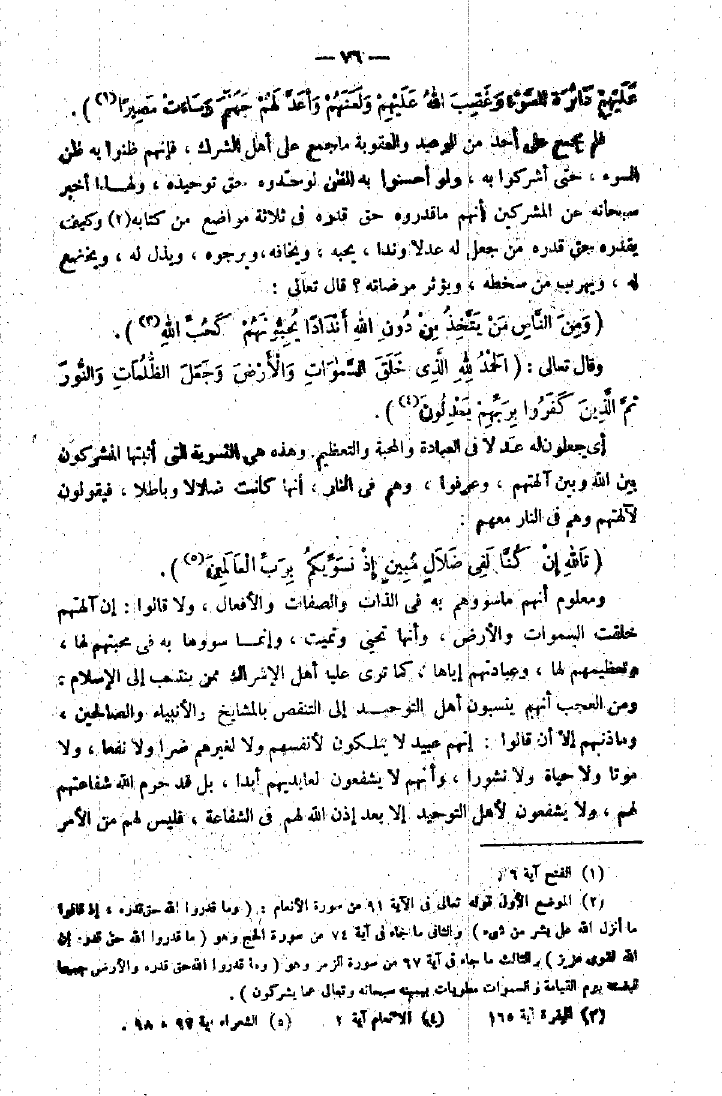 — ٧٦ —
عَلَيْهِمْ دَائِرَةُ السَّوْءِ وَغَضِبَ اللهُ عَلَيْهِمْ وَلَعَنَهُمْ وَأَعَدَّ لَهُمْ جَهَنَّمَ وَسَاءَتْ مَصِيرًا (١) ) .
فلم يجمع على أحد من الوعيد والعقوبة ماجمع على أهل الشرك ، فإنهم ظنوا به ظن
السوء ، حتى أشركوا به ، ولو أحسنوا به الظن لوحّدوه حق توحيده ، ولهـذا أخبر
سبحانه عن المشركين أنهم ماقدروه حق قدره فى ثلاثة مواضع من كتابه (٢) وكيف
يقدره حق قدره من جعل له عدلا وندا ، يحبه ، ويخافه ، ويرجوه ، ويذل له ، ويخضع
له ، ويهرب من سخطه ، ويؤثر مرضاته ؟ قال تعالى :
( وَمِنَ النَّاسِ مَنْ يَتَّخِذُ مِنْ دُونِ اللهِ أَنْدَادًا يُحِبُّونَهُمْ كَحُبِّ اللهِ (٣) ) .
وقال تعالى : ( الحَمْدُ لِلهِ الَّذِى خَلَقَ السَّمٰوَاتِ وَالْأَرْضَ وَجَعَلَ الظُّلُمَاتِ وَالنُّورَ
ثُمَّ الَّذِينَ كَفَرُوا بِرَبِّهِمْ يَعْدِلُونَ (٤) ) .
أى يجعلون له عدلا فى العبادة والمحبة والتعظيم. وهذه هى التسوية التى أثبتها المشركون
بين الله وبين آلهتهم ، وعرفوا ، وهم فى النار ، أنها كانت ضلالا وباطلا ، فيقولون
لآلهتهم وهم فى النار معهم :
( تَاللهِ إِنْ كُنَّا لَفِى ضَلَالٍ مُبِينٍ إِذْ نُسَوِّيكُمْ بِرَبِّ الْعَالَمِينَ (٥) ) .
ومعلوم أنهم ماسووهم به فى الذات والصفات والأفعال ، ولا قالوا : إن آلهتهم
خلقت السموات والأرض ، وأنها تحيى وتميت ، وإنمـا سووها به فى محبتهم لها ،
وتعظيمهم لها ، وعبادتهم إياها ، كما ترى عليه أهل الإشراك ممن ينتسب إلى الإسلام ؛
ومن العجب أنهم ينسبون أهل التوحيـد إلى التنقص بالمشايخ والأنبياء والصالحين ،
وماذنبهم إلا أن قالوا : إنهم عبيد لا يملكون لأنفسهم ولا لغيرهم ضرا ولا نفعا ، ولا
موتا ولا حياة ولا نشورا ، وأنهم لا يشفعون لعابديهم أبدا ، بل قد حرم الله شفاعتهم
لهم ، ولا يشفعون لأهل التوحيد إلا بعد إذن الله لهم فى الشفاعة ، فليس لهم من الأمر
(١) الفتح آية ٦ .
(٢) الموضع الأول قوله تعالى فى الآية ٩١ من سورة الأنعام : ( وما قدروا الله حق قدره ، إذ قالوا
ما أنزل الله على بشر من شىء ) والثانى ما جاء فى آية ٧٤ من سورة الحج وهو ( ما قدروا الله حق قدره إن
الله لقوى عزيز ) والثالث ما جاء فى آية ٦٧ من سورة الزمر وهو ( وما قدروا الله حق قدره والأرض جميعا
قبضته يوم القيامة والسموات مطويات بيمينه سبحانه وتعالى عما يشركون ) .
(٣) البقرة آية ١٦٥ (٤) الأنعام آية ٢ (٥) الشعراء آية ٩٧ ، ٩٨ .